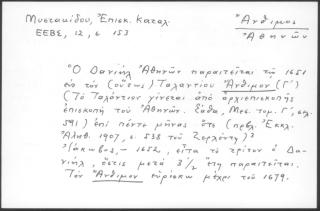 Μυστακίδου, Ἐπισκ. Καταλ.
ΕΕΒΣ, 12, σ. 153
Ἄνθιμος
Ἀθηνῶν
Ὁ Δανιὴλ Ἀθηνῶν παραιτεῖται τῇ 1651
εἰς τὸν (οὕτως) Ταλαντίου Ἄνθιμον (Γ΄)
(Τὸ Ταλάντιον γίνεται ἀπὸ ἀρχιεπισκοπῆς
ἐπισκοπὴ τοῦ Ἀθηνῶν. Σάθα, Μεσ. τομ. Γ΄, σελ.
591) ἐπὶ πέντε μῆνας (πρβλ. Ἐκκλ.
Ἀληθ. 1907, σ. 538 τοῦ Ζερλέντη)?
Ἰάκωβος, – 1652, εἶτα τὸ τρίτον ὁ Δα-
νιήλ, ὅστις μετὰ 3 1/2 ἔτη παραιτεῖται.
Τὸν Ἄνθιμον εὑρίσκω μέχρι τοῦ 1679.